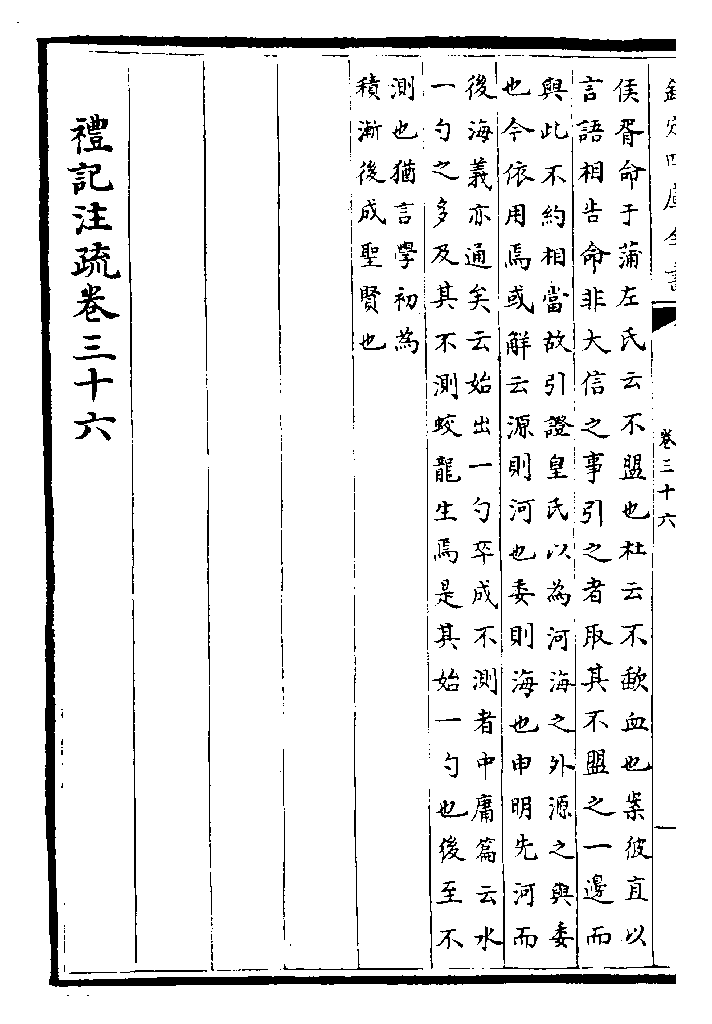 欽定四庫全書
卷三十六
侯胥命于蒲左氏云不盟也杜云不歃血也案彼直以
言語相告命非大信之事引之者取其不盟之一邊而
與此不約相當故引證皇氏以為河海之外源之與委
也今依用焉或解云源則河也委則海也申明先河而
後海義亦通矣云始出一勺卒成不測者中庸篇云水
一勺之多及其不測蛟龍生焉是其始一勺也後至不
測也猶言學初為
積漸後成聖賢也
禮記注疏卷三十六